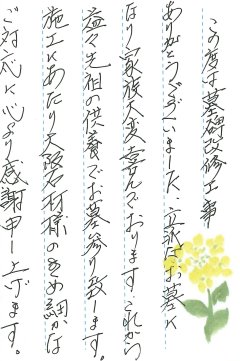 この度は墓碑改修工事
ありがとうございました。立派なお墓に
なり家族大変喜んでおります。これから
益々先祖の供養でお墓参り致します。
施工にあたり大塚石材様のきめ細かな
ご対応に心より感謝申し上げます。